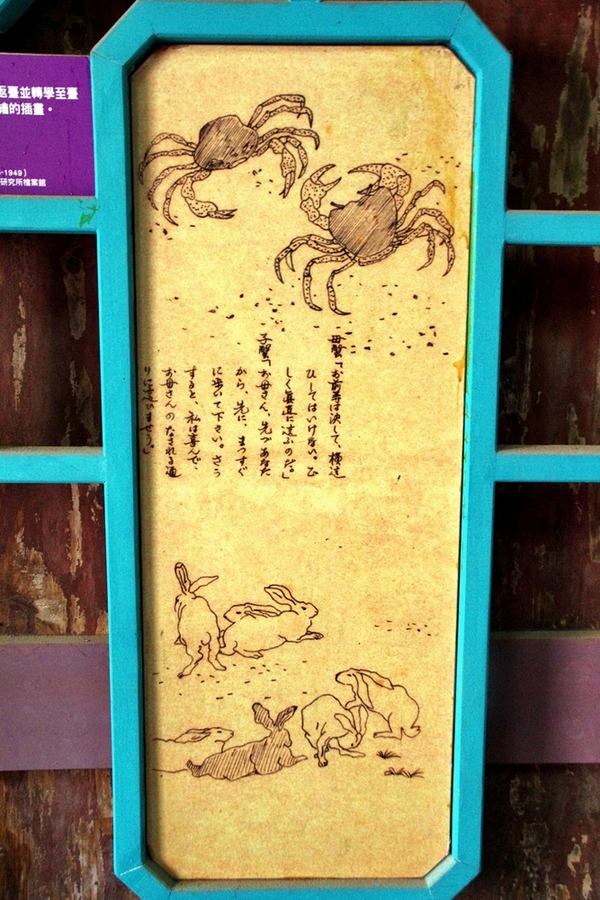 返臺並轉學至臺
繪的插畫。
-1949）
研究所檔案館
母蟹「お前等は決して、横這
ひしてはいけない。正
しく真直に這ふのだ。」
子蟹「お母さん、先づあなた
から、先に、まつすぐ
に歩いて下さい。さう
すると、私は喜んで、
お母さんのなされる通
りに這ひませう。」